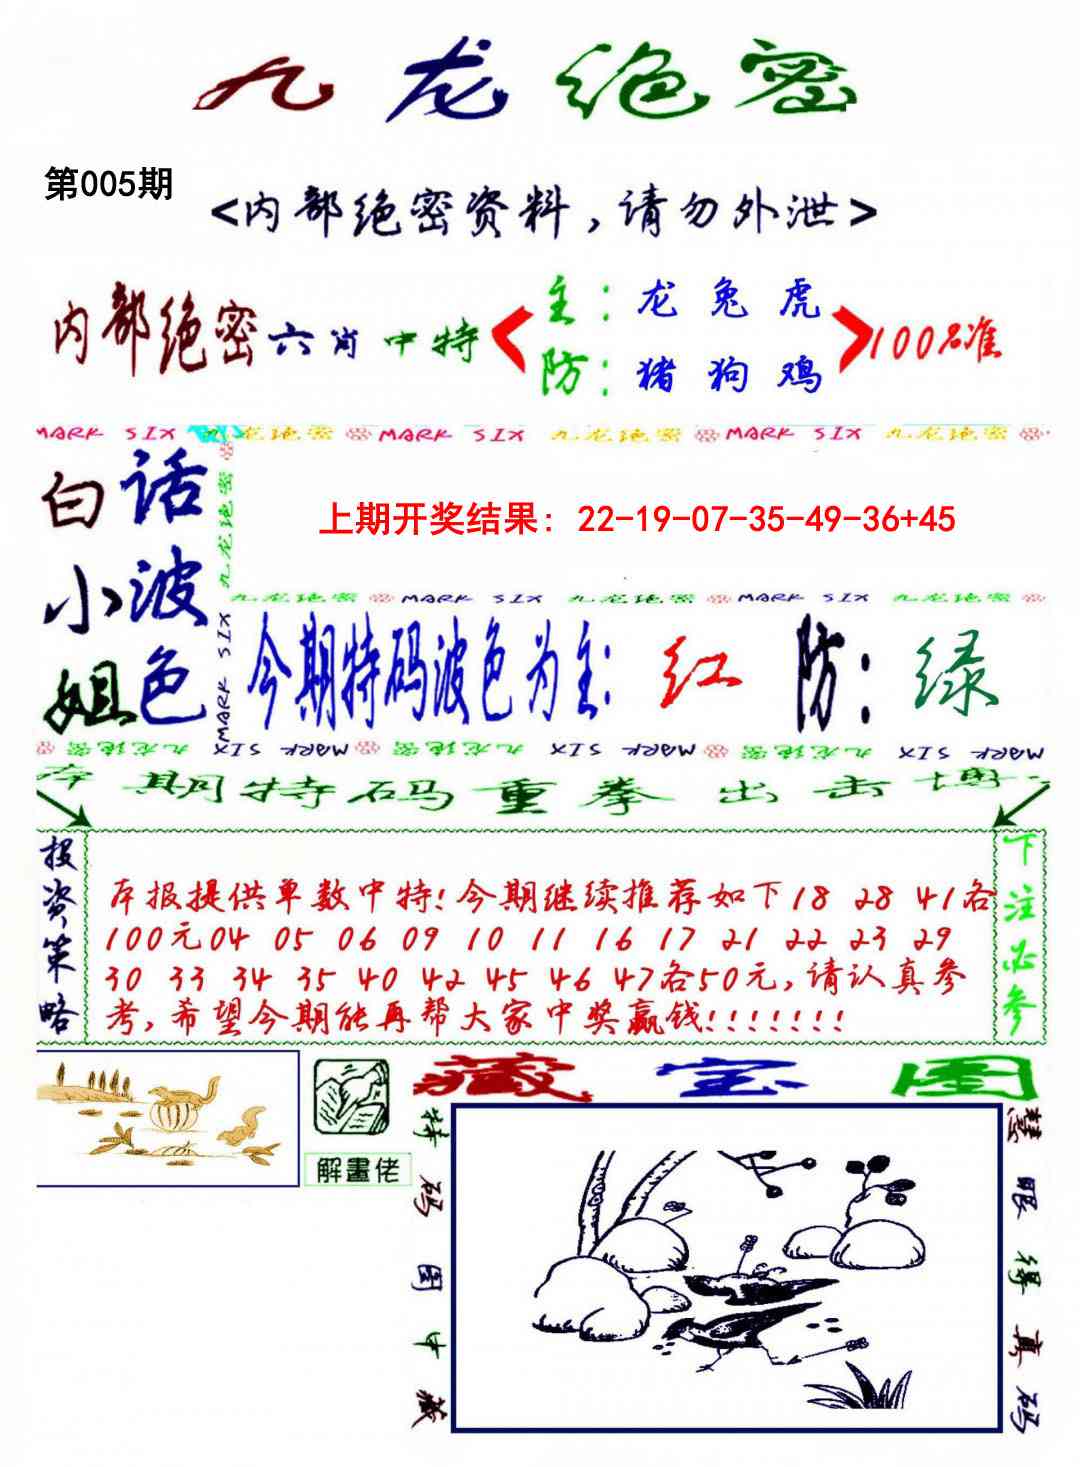 九龙绝密
第005期
<内部绝密资料，请勿外泄>
内部绝密六肖中特
主：龙 兔 虎
防：猪 狗 鸡
100%准
MARK SIX 九龙绝密 MARK SIX 九龙绝密 MARK SIX 九龙绝密
白小姐
话波色
九龙绝密
MARK SIX
上期开奖结果: 22-19-07-35-49-36+45
九龙绝密 MARK SIX 九龙绝密 MARK SIX 九龙绝密
今期特码波色为主: 红 防: 绿
九龙绝密 MARK SIX 九龙绝密 MARK SIX 九龙绝密 MARK SIX
本期特码重拳出击博
投资策略
本报提供单数中特!今期继续推荐如下18 28 41各
100元04 05 06 09 10 11 16 17 21 22 23 29
30 33 34 35 40 42 45 46 47各50元,请认真参
考,希望今期能再帮大家中奖赢钱!!!!!!!
下注必参
解畫佬
藏宝图
特码图中藏
慧眼得真码